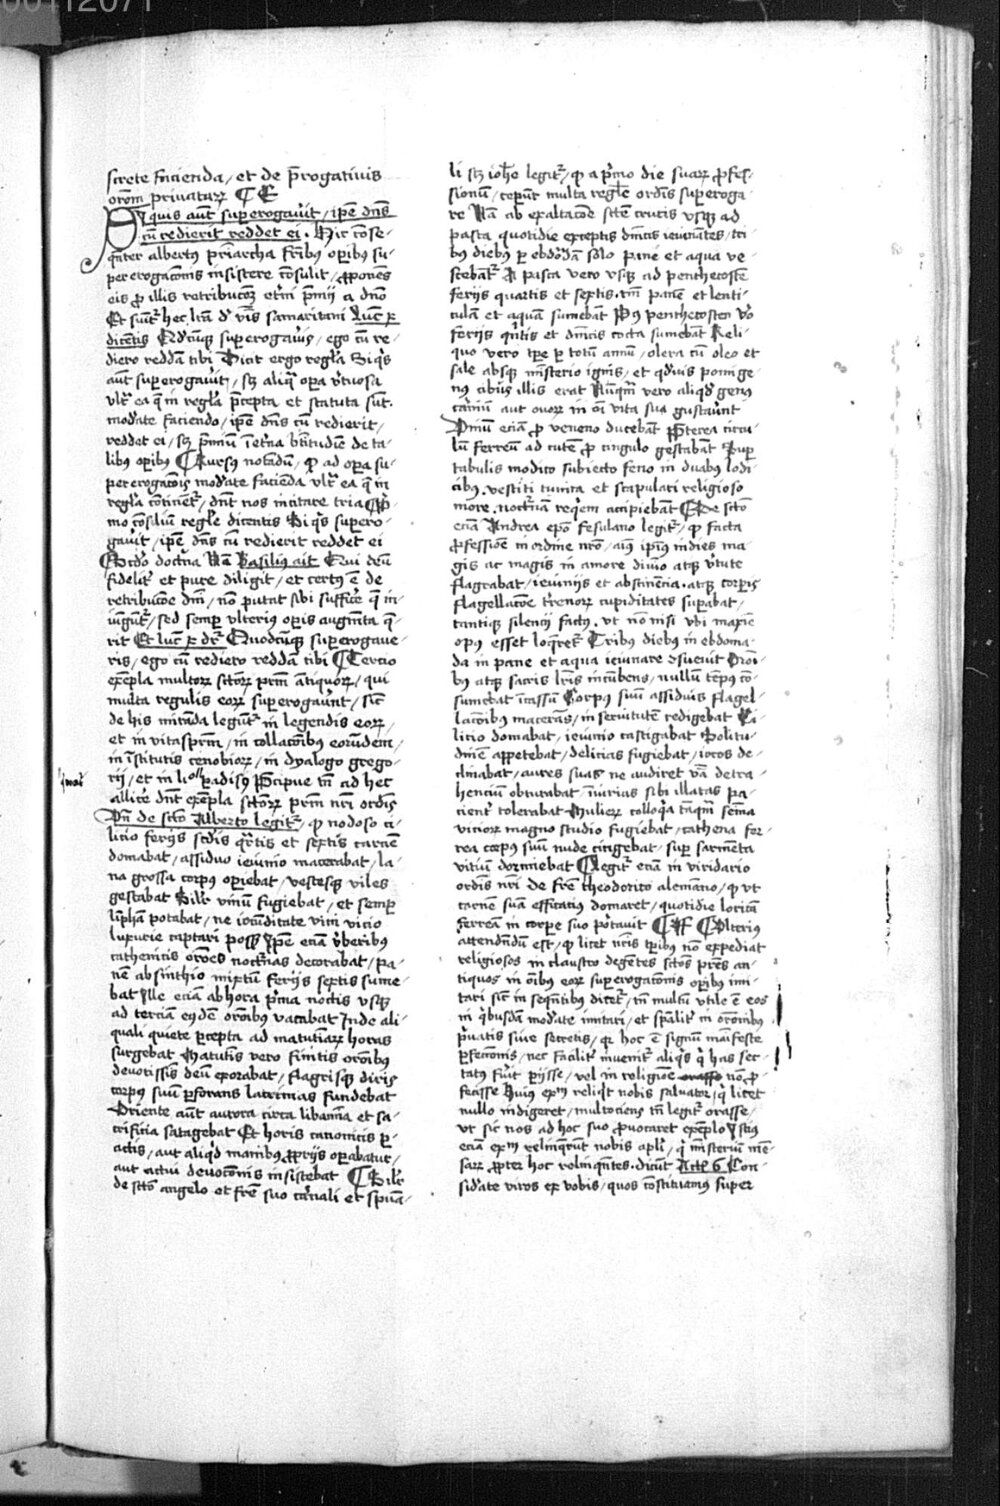 screte facienda / et de p̄rogatiuis
orōm priuatarꝝ ¶ C
Si quis aūt suꝑerogauīt / ipse dn̄s
cū redierit reddet ei . Hic cōse-
q̄nter albertꝰ pr̄iarcha fr̄ibꝰ oꝑibꝰ su-
ꝑerogacōnis insistere cōsulit / ꝓponēs
eis ꝓ illis retribucōeꝫ et̄ni p̄mij a dn̄o
dicentis Qd̄cūqꝫ suꝑerogauīs / ego cū re-
diero reddā tibi Dicit ergo regl̄a Si q̄s
aūt suꝑerogauīt / sꝫ aliq̄ oꝑa v̄tuosa
vlt̄ ea q̄ in regl̄a p̄cepta et statuta sūt .
mod̄ate faciendo / ipse dn̄s cū redierit /
reddet ei / sꝫ p̄miū ī et̄na bt̄itudīe de ta-
libꝰ oꝑibꝰ ¶ Rursꝰ notādū / ꝙ ad oꝑa su-
ꝑerogacōis mod̄ate facienda vlt̄ ea q̄ in
regl̄a cōtinēt̄ / dn̄t nos incitare tria ¶ P̄-
mo cōsiliū regl̄e dicentis Si q̄s suꝑero-
gauīt / ipse dn̄s cū redierit reddet ei
Scd̄o doct̄na Nā Basiliꝰ ait Qui deū
fidelit̄ et pure diligit / et certꝰ ē de
retribucōe dn̄i / nō putat sibi sufficē q̄ in-
iūgūt̄ / sed semꝑ vlteriꝰ oꝑis augmēta q̄-
rit Et luc̄ x dr̄ Quodcūqꝫ suꝑerogaue-
ris / ego cū rediero reddā tibi ¶ Tercio
exēpla multorꝝ sctōrꝝ pr̄m ātiquorꝝ / qui
multa regulis eorꝝ suꝑerogauīnt / sic̄
de his mirāda legūt̄ in legendis eorꝝ /
et in vitaspr̄m / in collacōibꝰ eorūdem /
in īstitutis cenobiorꝝ / in dyalogo grego-
rij / et in li° ꝑadisꝰ P̄cipue tn̄ ad hec
allicē dn̄t exēpla sctōrꝝ pr̄m nr̄i ordīs
Nā de scto Alberto legit̄ / ꝙ nodoso ci-
licio ferijs scd̄is q̄rtis et sextis carnē
domabat / assiduo ieiunio macerabat / la-
na grossa corpus oꝑiebat / vestesqꝫ viles
gestabat Silr̄ vinū fugiebat / et semꝑ
lȳphā potabat / ne iocūditate vini vicio
luxurie captari poss̄ Ipse eciā v̄beribus
cathenulis orōes noctnas decorabat / pa-
nē absinthio mixtū ferijs sextis sume-
bat Ille eciā ab hora p̄ma noctis vsqꝫ
ad terciā eiꝰdē orōnibꝰ vacabat Inde ali-
quali quiete ꝑcepta ad matutinarꝝ horas
surgebat Matutinis vero finitis orōnibꝰ
deuotissimis deū exorabat / flagrisqꝫ diris
corpus suū ꝑforans lacrimas fundebat
Oriente aūt aurora circa libamīa et sa-
crificia satagebat Et horis canonicis ꝑ-
actis / aut aliqd̄ manibꝰ ꝓprijs oꝑabatur /
aut actui deuocōnis insistebat ¶ Silr̄
de scto angelo et fr̄e suo carnali et spūa-
li sꝫ ioh̄e legit̄ / ꝙ a p̄mo die suarꝝ ꝓfes-
sionū / ceꝑūt multa regl̄e ordīs suꝑeroga-
re Nā ab exaltacōe scte crucis vsqꝫ ad
pasca quotidie exceptis dn̄icis ieiunātes / tri-
bꝰ diebꝰ ꝑ ebdōdā solo pane et aqua ve-
scebāt̄ A pasca vero vsqꝫ ad penthecostē
ferijs quartis et sextis . tm̄ panē et lenti-
culā et aquā sumebāt Pꝰ penthecosten v̄o
ferijs q̄ntis et dn̄icis cocta sumebāt Reli-
quo vero tꝑe ꝑ totū annū / olera cū oleo et
sale absqꝫ mīsterio ignis / et qd̄uis pomi ge-
nꝰ cibus illis erat Nūqꝫ vero aliqd̄ genꝰ
carniū aut ouorꝝ in oī vita sua gustauīnt
Vinū eciā ꝓ veneno ducebāt P̄terea circu-
lū ferreū ad cutē ꝓ cingulo gestabāt Suꝑ
tabulis modico subiecto feno in duabꝰ lodi-
cibꝰ . vestiti tunica et scapulari religioso
more . noct̄nā req̄em accipiebāt ¶ De scto
eciā Andrea epo fesulano legit̄ / ꝙ facta
ꝓfessione in ordine nr̄o / aīus ipsiꝰ indies ma-
gis ac magis in amore diuīo atqꝫ v̄tute
flagrabat / ieiunijs et abstinēcia . atqꝫ corꝑis
flagellacōe t̄renorꝝ cupiditates suꝑabat /
tantiqꝫ silencij factꝰ . vt nō nisi vbi maxīe
opꝰ esset loq̄ret̄ Tribus diebꝰ in ebdoma-
da in pane et aqua ieiunare ꝯsueuit Orōi-
bꝰ atqꝫ sacris lr̄is incūbens / nullū tēpꝰ cō-
sumebat īcassū Corpus suū assiduis flagel-
lacōibꝰ macerans / in seruitutē redigebat Ci-
licio domabat / ieiunio castigabat Solitu-
dīnē appetebat / delicias fugiebat / iocos de-
clinabat / aures suas ne audiret v̄ba detra-
hencium obturabat iniurias sibi illatas pa-
cient̄ tolerabat Mulierꝝ colloq̄a tāqm̄ semīa
viciorꝝ magno studio fugiebat / cathena fer-
rea corpꝰ suū nude cingebat / suꝑ sarmēta
vitiū dormiebat ¶ Legit̄ eciā in viridario
ordīs nr̄i de fr̄e theodorico alemano / ꝙ vt
carnē suā efficacius domaret / quotidie loricā
ferreā in corꝑe suo portauit ¶ F ¶ Vlterius
attendēdū est / ꝙ licet nr̄is tꝑibꝰ nō expediat
religiosos in claustro degētes sctōs pr̄es an-
tiquos in oībꝰ eorꝝ suꝑerogacōnis oꝑibꝰ imi-
tari sic̄ in seq̄ntibꝰ dicet̄ / tn̄ multū vtile ē eos
in q̄busdā mod̄ate imitari / et spālit̄ in orōnibꝰ
p̄uatis siue secretis / qꝛ hoc ē signū māifeste
ꝑfecōnis / nec facilit̄ inuenit̄ aliq̄s q̄ has sec-
tatꝰ fuīt ꝑijsse / vel in religiōe nō ꝓ-
fecisse Huiꝰ exm̄ reliq̄t nobis saluator / q̄ licet
nullo indigeret / multociens tn̄ legit̄ orasse /
vt sic nos ad hoc suo ꝓuocaret exēplo Istius
eciā exm̄ relinq̄rūt nobis apl̄i / q̄ mīsteriū mē-
sarꝝ ꝓpter hoc relinq̄ntes . dicūt Actꝰ 6 Con-
sid̄ate viros ex vobis / quos cōstituamꝰ super